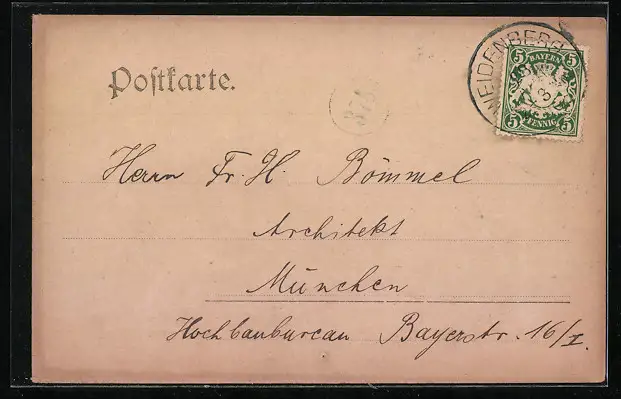 Postkarte.
WEIDENBERG
5 BAYERN 5
5 PFENNIG 5
378
Herrn Fr. H. Bömmel
Architekt
München
Hochbaubureau Bayerstr. 16/I.